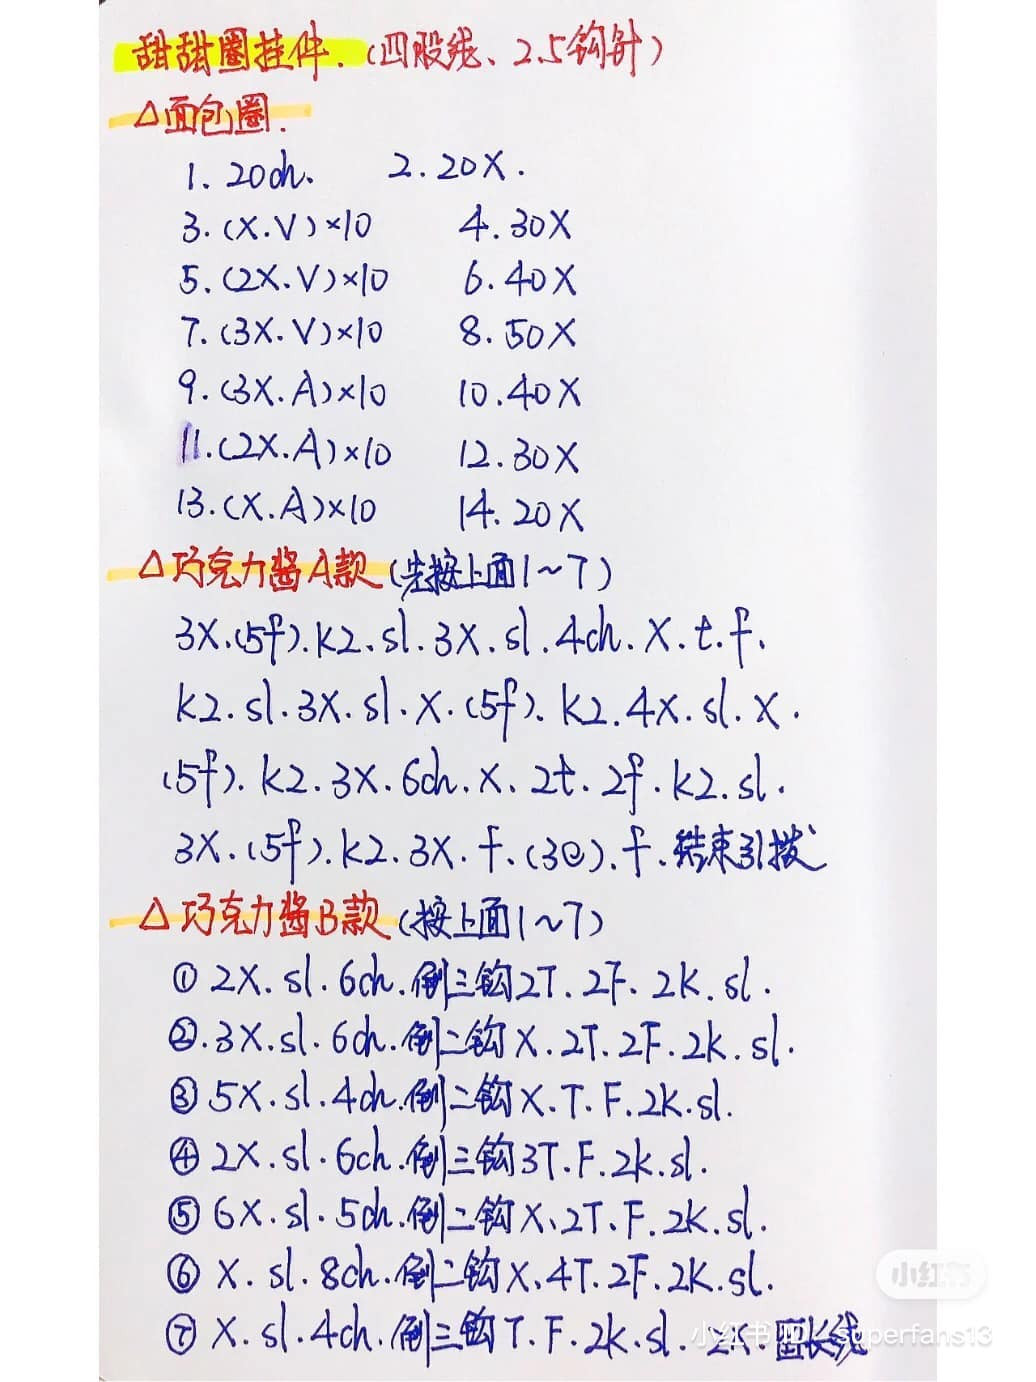 甜甜圈挂件.(四股线、2.5钩针)
△面包圈.
1. 20ch. 2. 20X.
3. (X.V)×10 4. 30X
5. (2X.V)×10 6. 40X
7. (3X.V)×10 8. 50X
9. (3X.A)×10 10. 40X
11. (2X.A)×10 12. 30X
13. (X.A)×10 14. 20X
△巧克力酱A款(先按上面1~7)
3X.(5f).K2.sl.3X.sl.4ch.X.t.f.
K2.sl.3X.sl.X.(5f).K2.4X.sl.X.
(5f).K2.3X.6ch.X.2t.2f.K2.sl.
3X.(5f).K2.3X.f.(3e).f.结束引拨
△巧克力酱B款(按上面1~7)
① 2X.sl.6ch.倒三钩2T.2F.2K.sl.
②.3X.sl.6ch.倒二钩X.2T.2F.2K.sl.
③ 5X.sl.4ch.倒二钩X.T.F.2K.sl.
④ 2X.sl.6ch.倒三钩3T.F.2K.sl.
⑤ 6X.sl.5ch.倒二钩X、2T.F.2K.sl.
⑥ X.sl.8ch.倒二钩X、4T.2F.2K.sl.
⑦ X.sl.4ch.倒三钩T.F.2K.sl.2X.留长线
小红书
小红书ID: superfans13